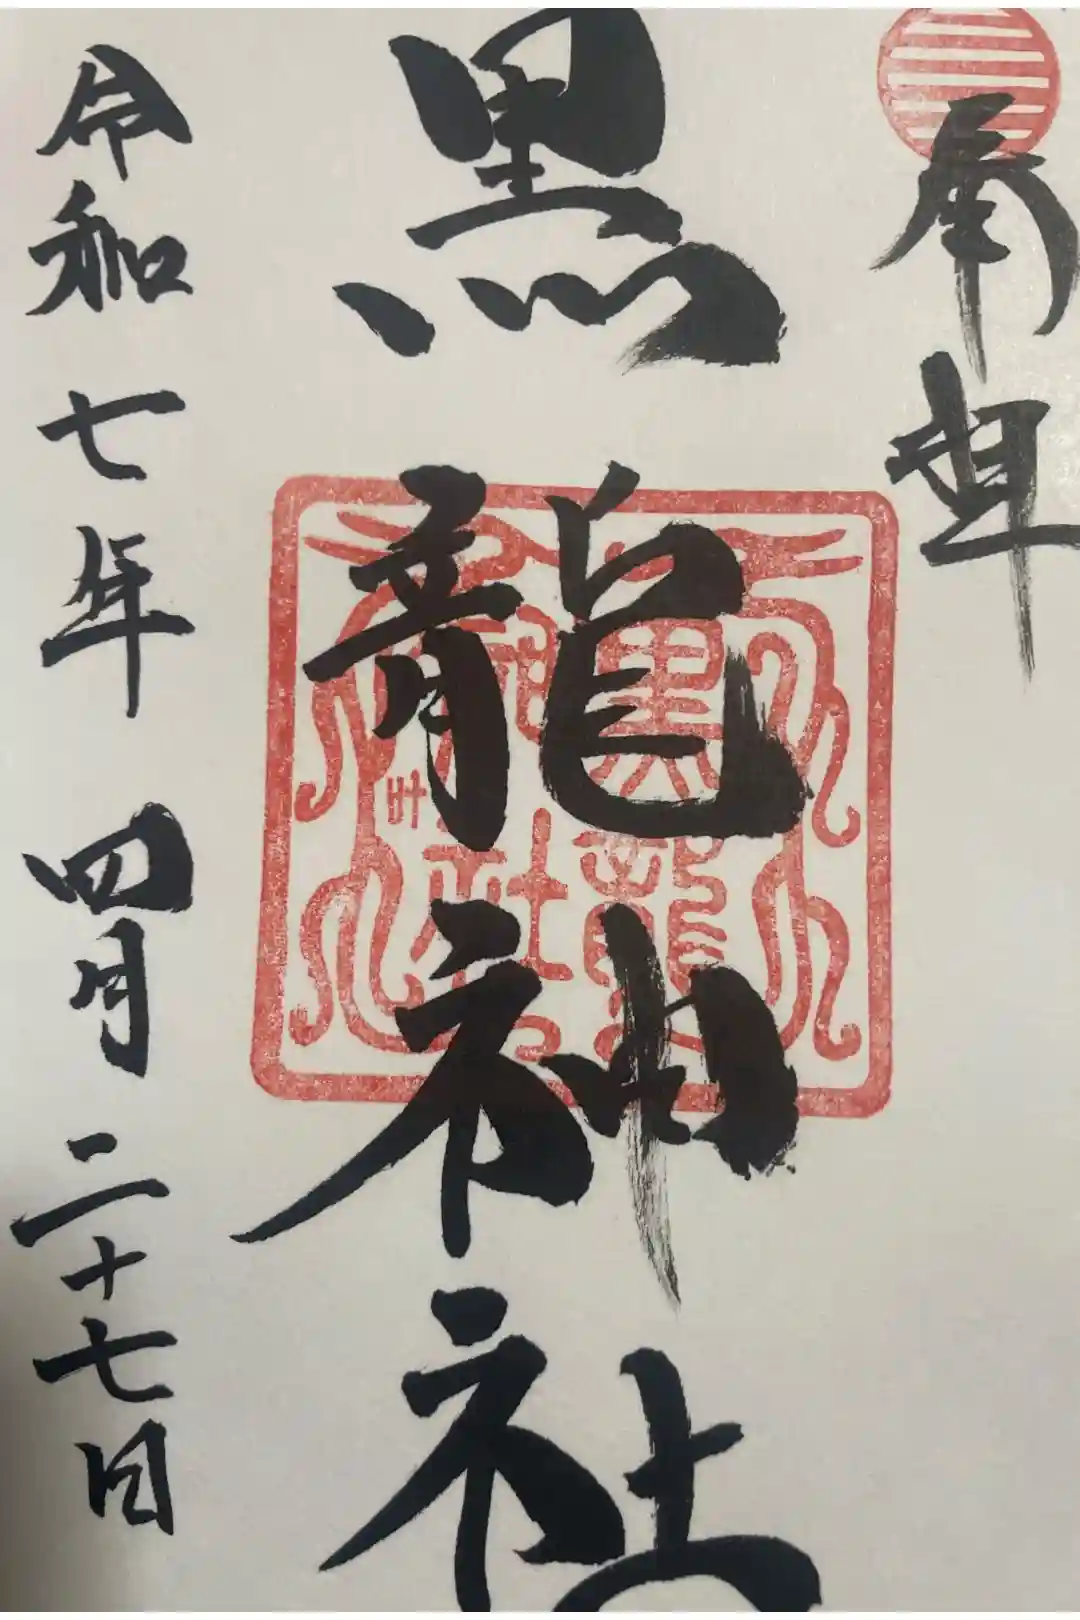 奉拝
黒龍神社
黒龍
神社
令和七年四月二十七日